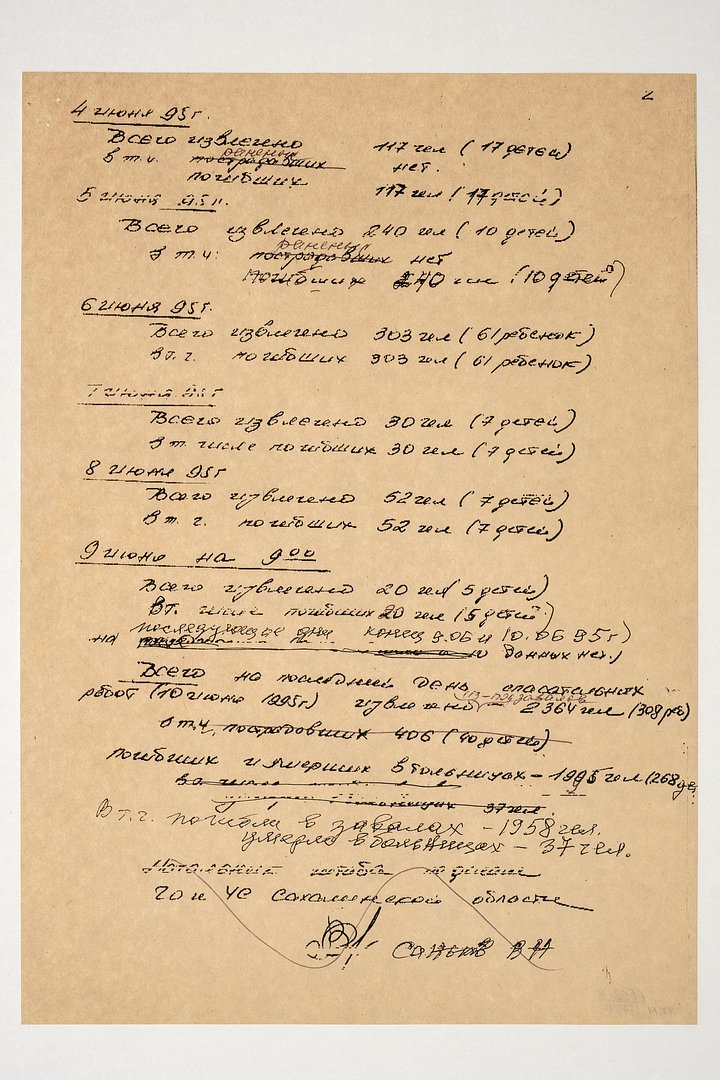 2
4 июня 95 г.
Всего извлечено 117 чел (17 детей)
раненых
в т.ч. пострадавших нет.
погибших 117 чел (17 детей)
5 июня 95 г.
Всего извлечено 240 чел (10 детей)
раненых
в т.ч. пострадавших нет
погибших 240 чел (10 детей)
6 июня 95 г.
Всего извлечено 303 чел (61 ребенок)
в т.ч. погибших 303 чел (61 ребенок)
7 июня 95 г
Всего извлечено 30 чел (7 детей)
в т. числе погибших 30 чел (7 детей)
8 июня 95 г
Всего извлечено 52 чел (7 детей)
в т.ч. погибших 52 чел (7 детей)
9 июня на 9 00
Всего извлечено 20 чел (5 детей)
в т. числе погибших 20 чел (5 детей)
последующие дни конец 9.06 и 10.06 95 г)
на данных нет.)
Всего на последний день спасательных
из-под завалов
работ (10 июня 1995 г) извлечено - 2364 чел (308 реб)
в т.ч. пострадавших 406 (40 детей)
погибших и умерших в больницах - 1995 чел (268 де
в т. числе
37 чел.
В т.ч. погибли в завалах - 1958 чел.
умерло в больницах - 37 чел.
Начальник штаба
ГО и ЧС Сахалинской области
Саньков В Н